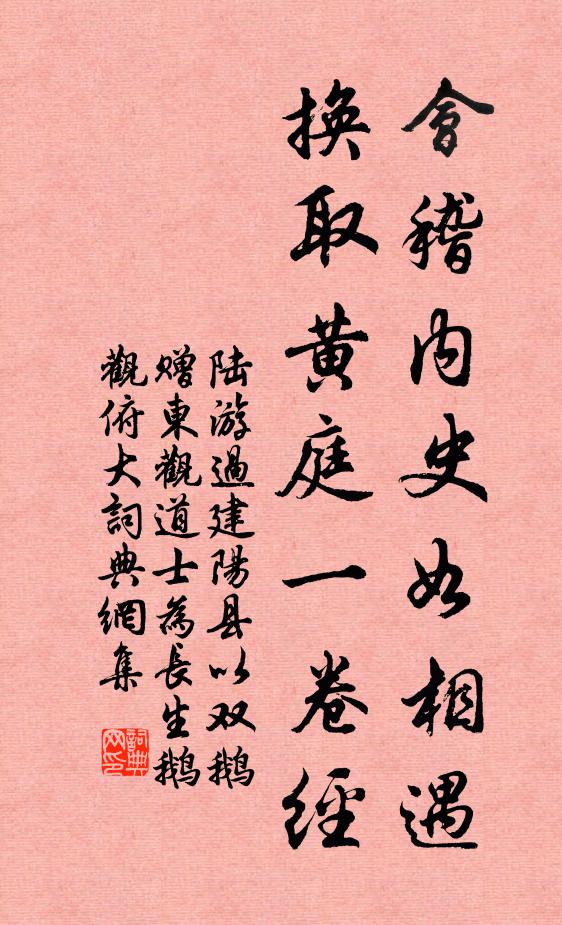 會稽内史如相遇
換取黄庭一卷經
陆游過建陽县以双鹅
贈東觀道士為長生鹅
觀俯大詞典網集
詞典网印